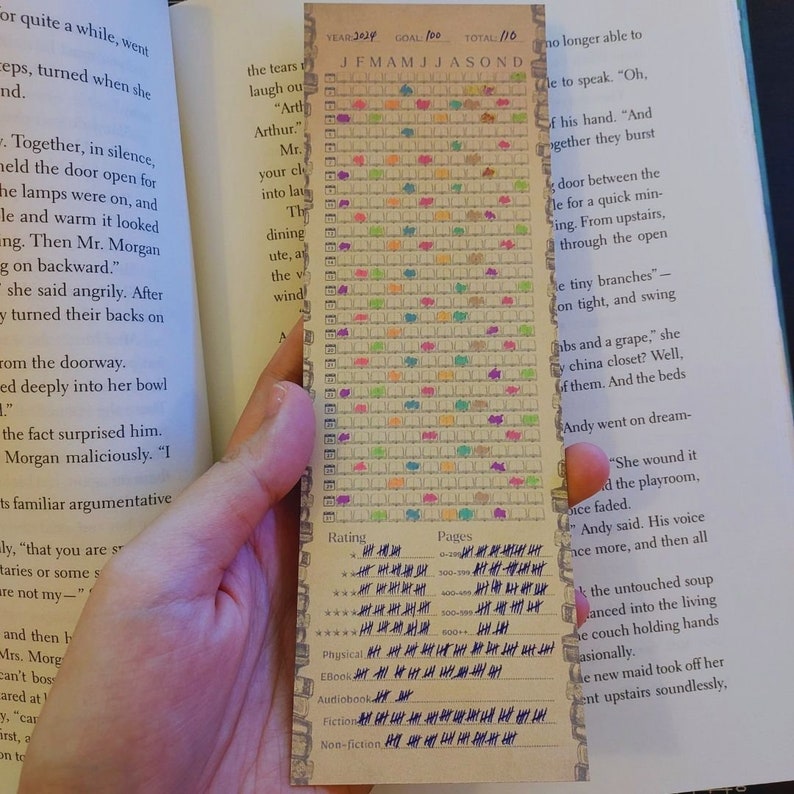 or quite a while, went
teps, turned when she
nd.
y. Together, in silence,
held the door open for
he lamps were on, and
le and warm it looked
ing. Then Mr. Morgan
g on backward.”
” she said angrily. After
y turned their backs on
rom the doorway.
ed deeply into her bowl
.”
the fact surprised him.
Morgan maliciously. “I
ts familiar argumentative
ly, “that you are
taries or some s
re not my—”
and then h
Mrs. Morg
can’t bos
ared at
y, “car
irst, a
on to
the tears
laugh ou
“Arth
Arthur.”
Mr.
your cl
into lau
Th
dining
ute, a
the v
wind
YEAR: 2024 GOAL: 100 TOTAL: 110
J F M A M J J A S O N D
1
2
3
4
5
6
7
8
9
10
11
12
13
14
15
16
17
18
19
20
21
22
23
24
25
26
27
28
29
30
31
Rating Pages
★ 0-299
★★ 300-399
★★★ 400-499
★★★★ 500-599
★★★★★ 600++
Physical
EBook
Audiobook
Fiction
Non-fiction
no longer able to
le to speak. “Oh,
of his hand. “And
ogether they burst
door between the
le for a quick min-
ing. From upstairs,
through the open
e tiny branches”—
on tight, and swing
mbs and a grape,” she
y china closet? Well,
of them. And the beds
Andy went on dream-
“She wound it
d the playroom,
oice faded.
” Andy said. His voice
nce more, and then all
k the untouched soup
lanced into the living
e couch holding hands
asionally.
e new maid took off her
ent upstairs soundlessly,